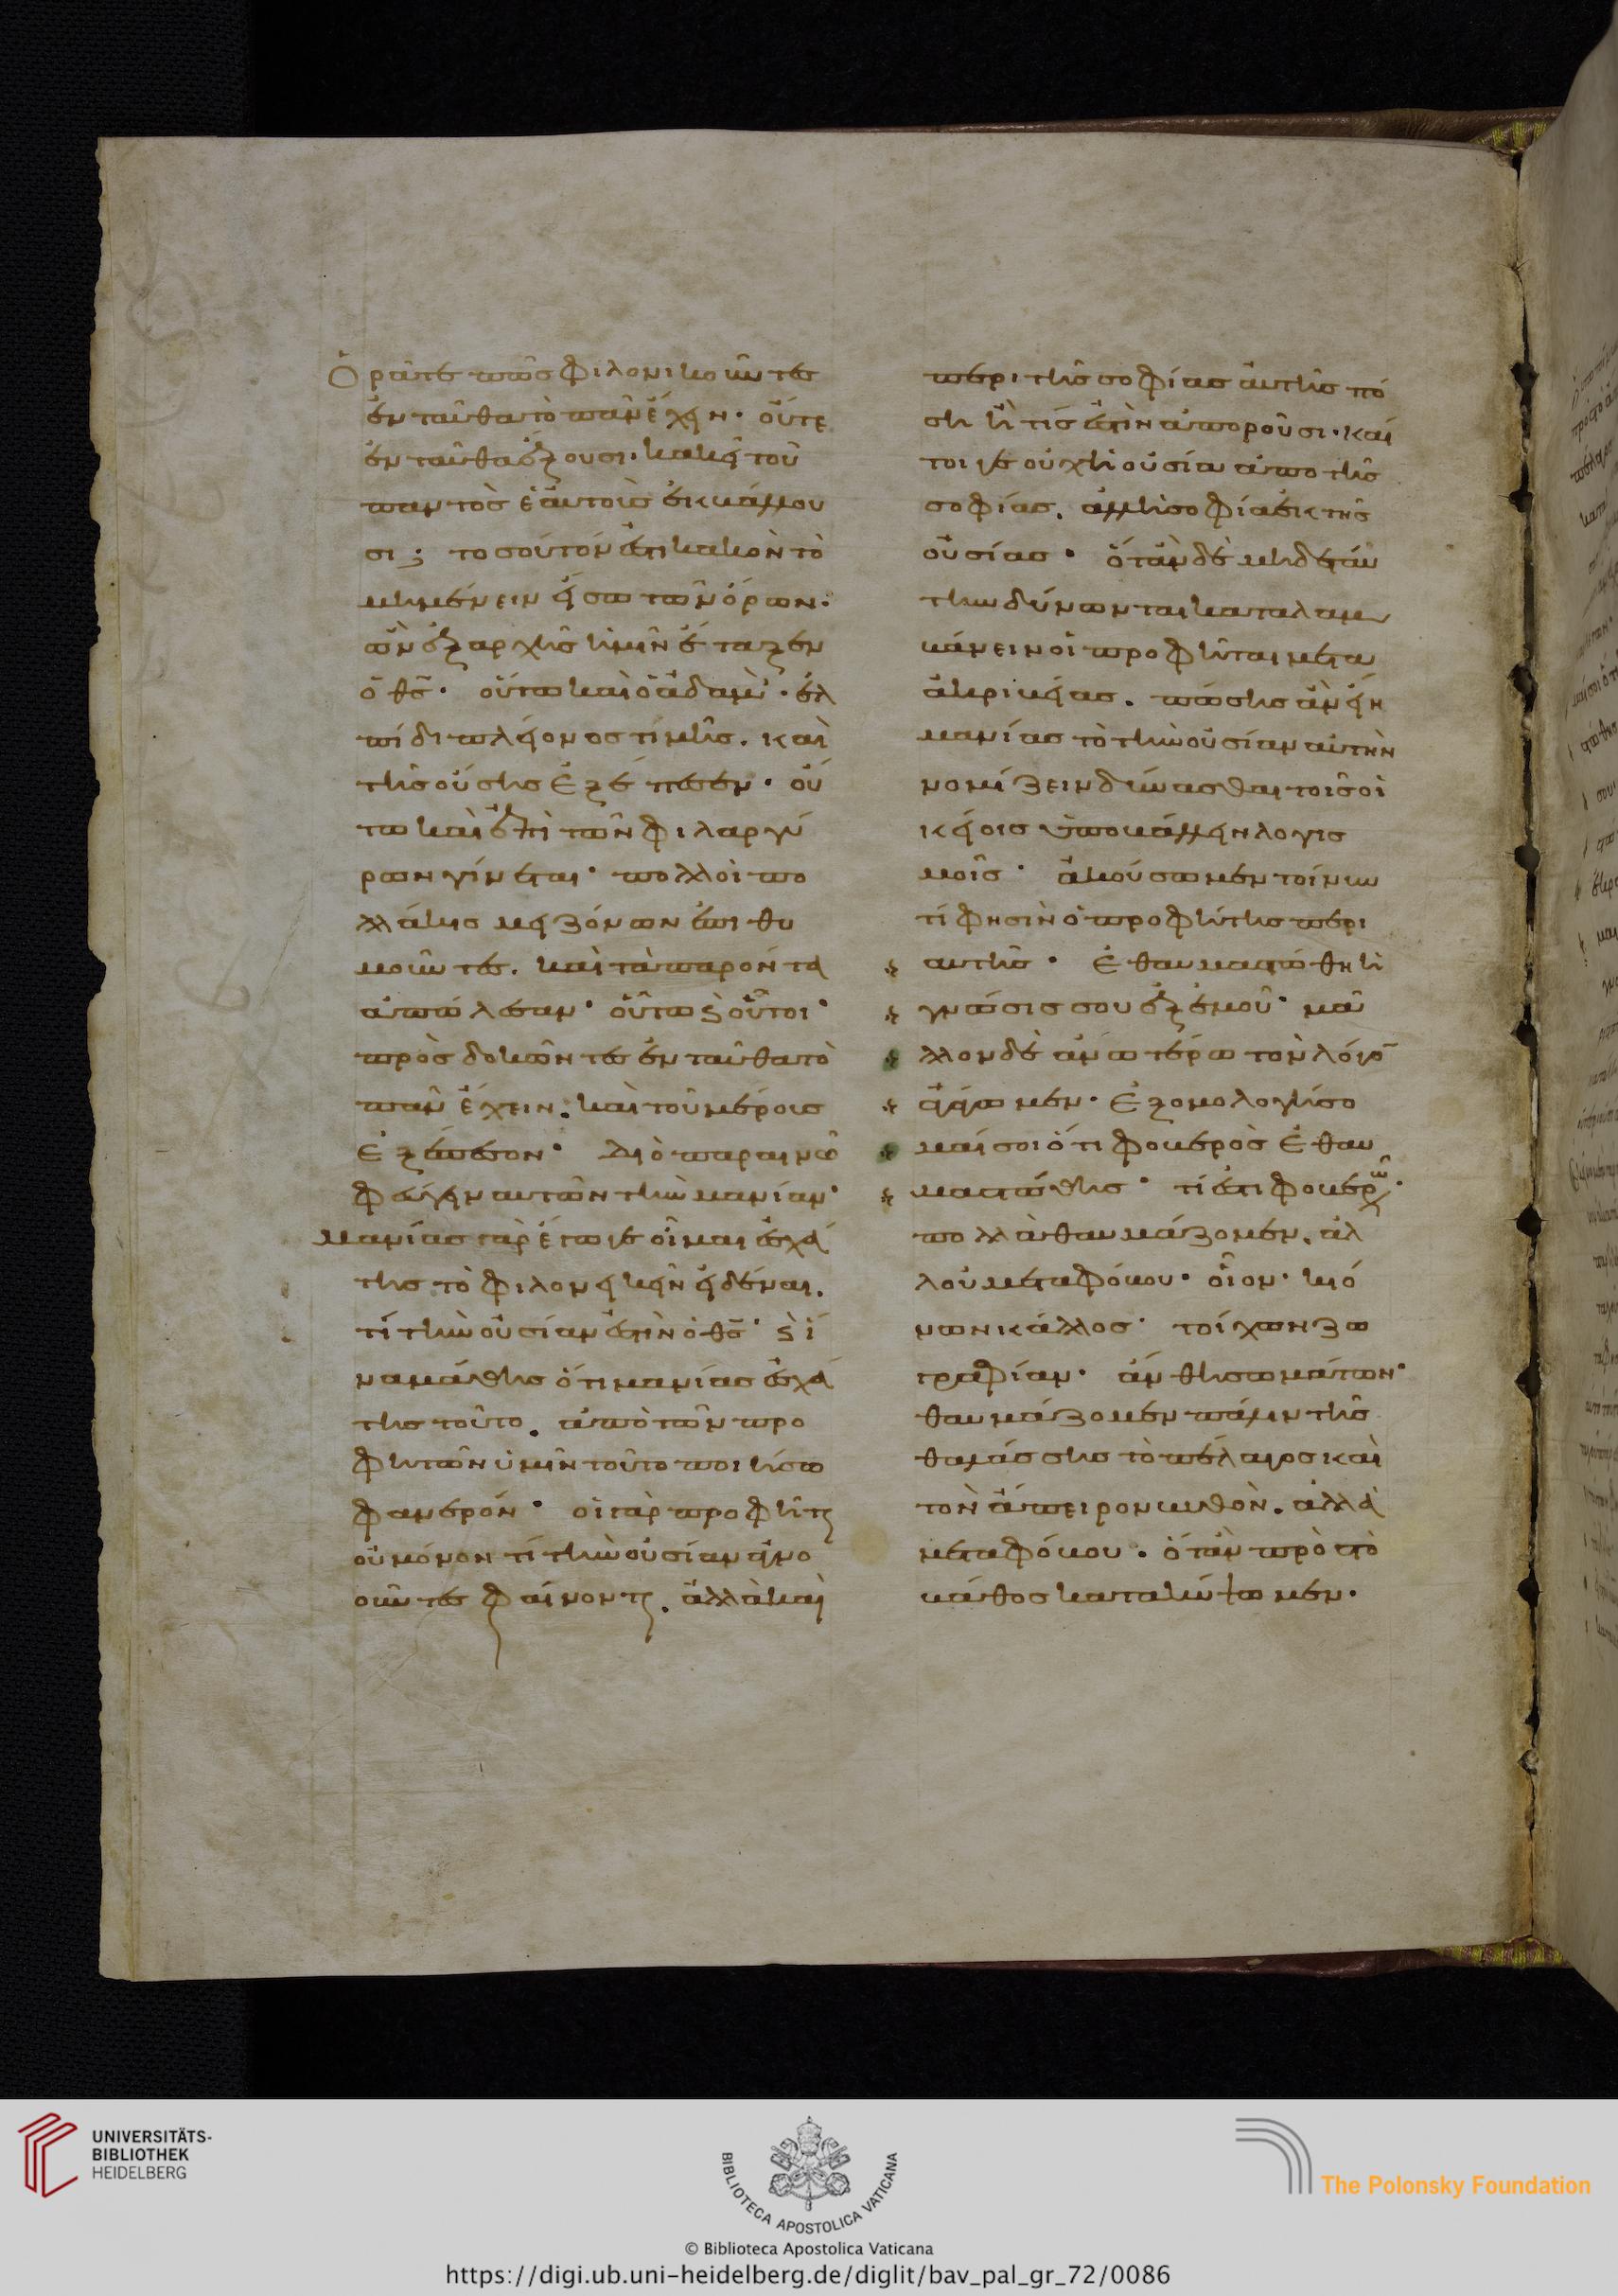 Ὁρᾶτε πῶς φιλονικοῦντες
ἐνταῦθα τὸ πᾶν ἔχειν· οὔτε
ἐνταῦθα ἕξουσι· κακεῖ τοῦ
παντὸς ἑαυτοὺς ἐκβάλλου
σι; τοσοῦτόν ἐστι κακὸν τὸ
μὴ μένειν εἴσω τῶν ὅρων·
ὧν ἐξαρχῆς ἡμῖν ἔταξεν
ὁ θς· οὕτω καὶ ὁ ἀδαμ· ἐλ
πίδι πλείονος τιμῆς. καὶ
τῆς οὔσης ἐξέπεσεν· οὕ
τω καὶ ἐπὶ τῶν φιλαργύ
ρων γίνεται· πολλοὶ πο
λλάκις μειζόνων ἐπιθυ
μοῦντες. καὶ τὰ παρόντα
ἀπώλεσαν· οὕτω ϗ οὗτοι·
προσδοκῶντες ἐνταῦθα τὸ
πᾶν ἔχειν. καὶ τοῦ μέρους
ἐξέπεσον· Διὸ παραινῶ
φεύγειν αυτῶν τὴν μανίαν·
μανίας γὰρ ἔγωγε οἶμαι ἐσχά
της τὸ φιλονεικεῖν εἰδέναι.
τί τὴν οὐσίαν ἐστὶν ὁ θς· ϗ ἵ
να μάθῃς ὅτι μανίας ἐσχά
της τοῦτο. ἀπὸ τῶν προ
φητῶν ὑμῖν τοῦτο ποιήσω
φανερόν· οἱ γὰρ προφῆται
οὐ μόνον τί τὴν οὐσίαν ἀγνο
οῦντες φαίνονται. ἀλλὰ καὶ
περι τῆς σοφίας αὐτῆς πό
ση ἢ τίς ἐστὶν ἀποροῦσι· καί
τοιγε οὐχ ἡ οὐσία ἀπο τῆς
σοφίας. ἀλλ' ἡ σοφία ἐκ τῆς
οὐσίας· ὅταν δὲ μηδε ταύ
την δύνωνται καταλαμ
βάνειν οἱ προφῆται μετα
ἀκριβείας. πόσης ἂν εἴη
μανίας τὸ τὴν οὐσίαν αὐτὴν
νομίζειν δύνασθαι τοῖς οἰ
κείοις ὑποβάλλειν λογισ
μοῖς· ἀκούσωμεν τοίνυν
τί φησὶν ὁ προφήτης περι
αυτῆς· Ἐθαυμαστώθη ἡ
γνῶσις σου ἐξ ἐμοῦ· μᾶ
λλον δὲ ἀνωτέρω τὸν λόγο̄
ἀγάγωμεν· Ἐξομολογήσο
μαί σοι ὅτι φοβερὸς ἐθαυ
μαστώθης· τί ἐστι φοβερῶς·
πολλὰ θαυμάζομεν. ἀλ
λοὐ μετα φόβου· οἷον· κιό
νων κάλλος· τοίχων ζω
γραφίαν· ἄνθη σωμάτων·
θαυμάζομεν πάλιν τῆς
θαλάσσης τὸ πέλαγος καὶ
τὸν ἄπειρον βυθὸν. ἀλλὰ
μετα φόβου. ὅταν πρὸς τὸ
βάθος κατακύψωμεν.
UNIVERSITÄTS-
BIBLIOTHEK
HEIDELBERG
BIBLIOTECA APOSTOLICA VATICANA
The Polonsky Foundation
© Biblioteca Apostolica Vaticana
https://digi.ub.uni-heidelberg.de/diglit/bav_pal_gr_72/0086